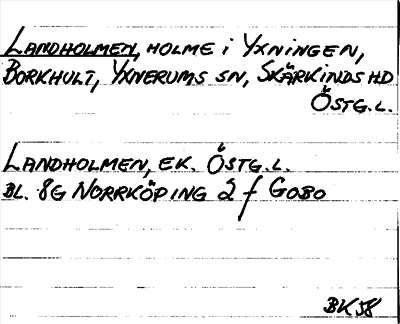 LANDHOLMEN, HOLME i YXNINGEN,
BORKHULT, YXNERUMS SN, SKÄRKINDS HD
ÖSTG. L.
LANDHOLMEN, EK. ÖSTG. L.
BL. 8G NORRKÖPING 2 f GOBO
BK 58